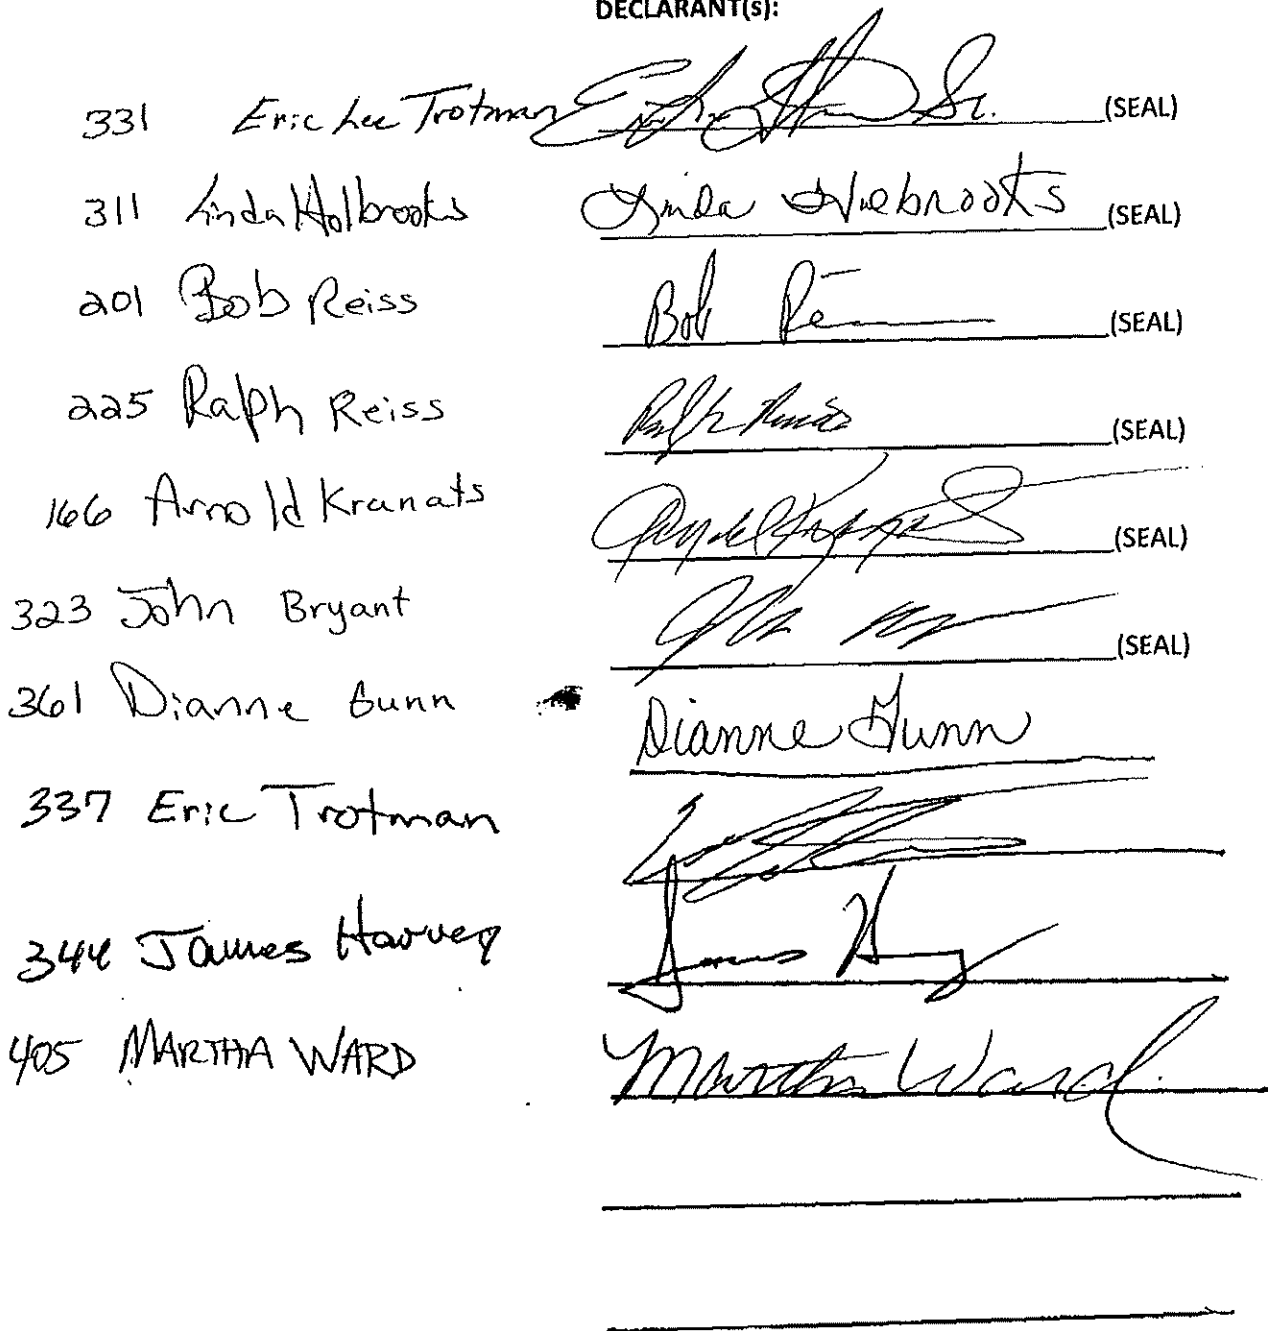 DECLARANT(s):
331 Eric Lee Trotman Sr. (SEAL)
311 Linda Holbrooks Linda Holbrooks (SEAL)
201 Bob Reiss Bob (SEAL)
225 Ralph Reiss Ralph Reiss (SEAL)
166 Arnold Kranats (SEAL)
323 John Bryant (SEAL)
361 Dianne Gunn Dianne Gunn
337 Eric Trotman
344 James Harvey James
405 MARTHA WARD Martha Ward